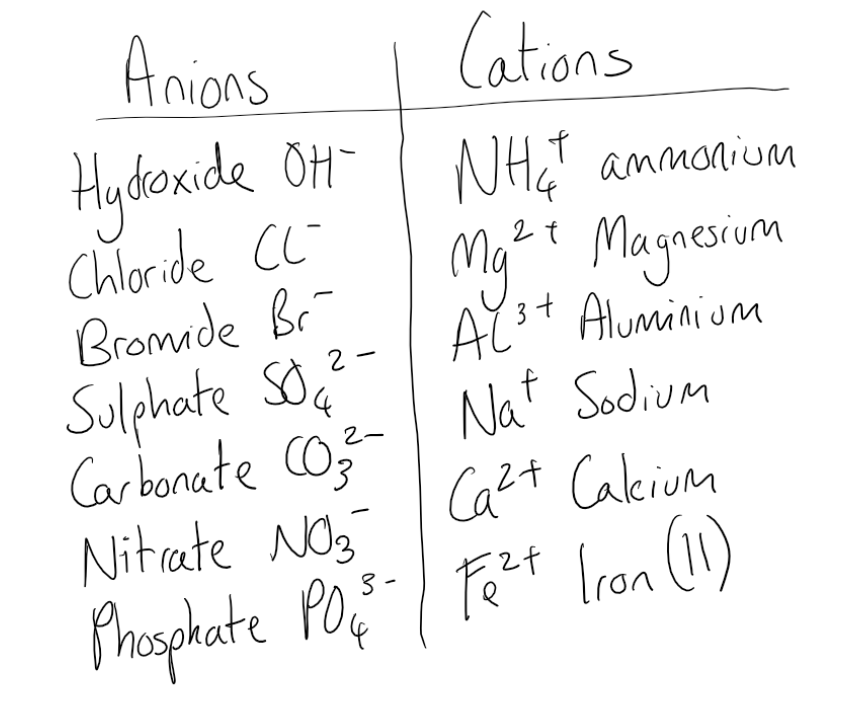 Anions Cations
Hydroxide OH⁻ NH₄⁺ ammonium
Chloride Cl⁻ Mg²⁺ Magnesium
Bromide Br⁻ Al³⁺ Aluminium
Sulphate SO₄²⁻ Na⁺ Sodium
Carbonate CO₃²⁻ Ca²⁺ Calcium
Nitrate NO₃⁻ Fe²⁺ Iron (II)
Phosphate PO₄³⁻